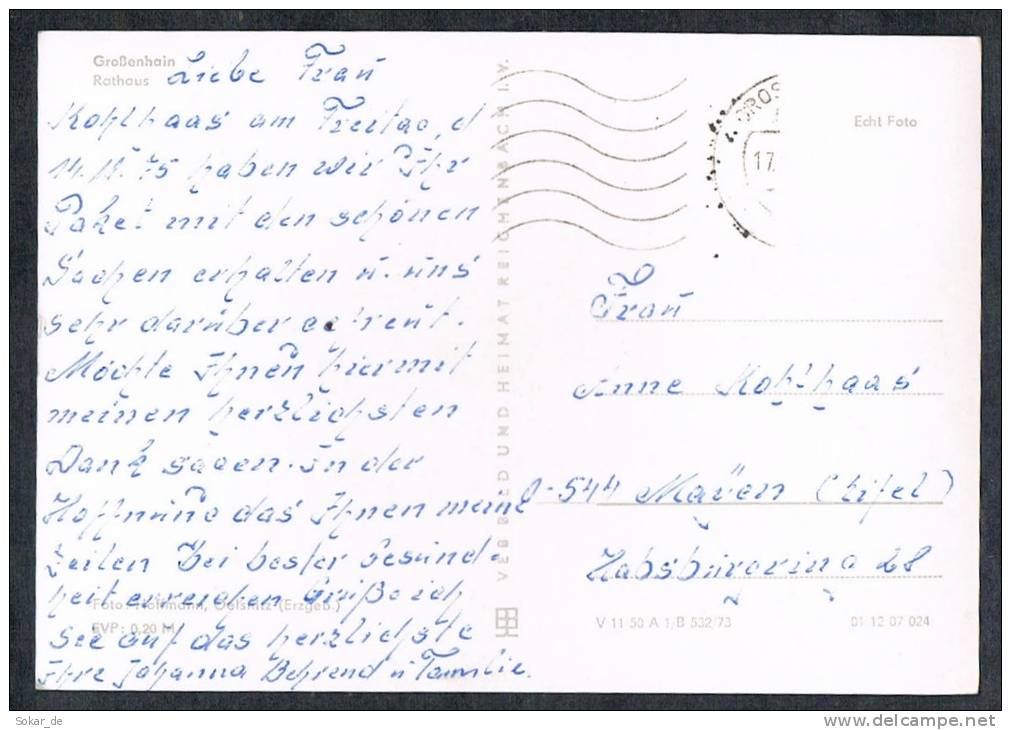 Großenhain
Rathaus
Liebe Frau
Kohlhaas am Freitag, d
14. 11. 75 haben wir Ihr
Paket mit den schönen
Sachen erhalten u. uns
sehr darüber gefreut.
Möchte Ihnen hiermit
meinen herzlichsten
Dank sagen. In der
Hoffnung das Ihnen meine
Zeilen bei bester Gesund-
heit erreichen Grüße ich
See auf das herzlichste
Ihre Johanna Behrend u Familie.
Foto: Hoffmann, Oelsnitz (Erzgeb.)
EVP: 0,20 M
VEB BILD UND HEIMAT REICHENBACH I. V.
GROS
17.
Echt Foto
Frau
Anne Kohlhaas
D-544 Mayen (Eifel)
Habsburgring 28
V 11 50 A 1/B 532/73
01 12 07 024
Sokar_de
delcampe.net